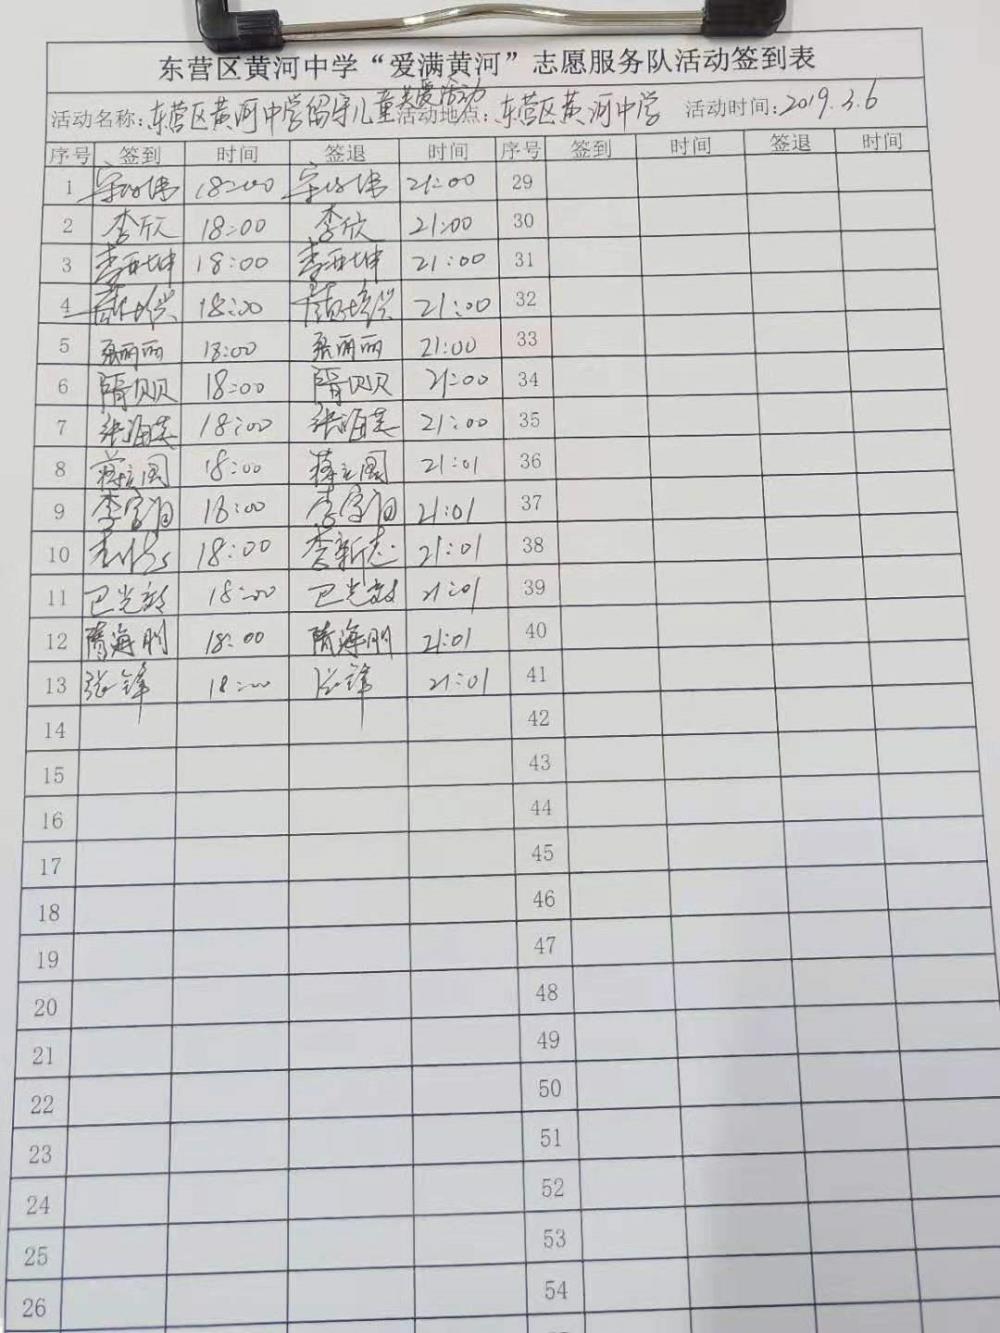 东营区黄河中学“爱满黄河”志愿服务队活动签到表
活动名称:东营区黄河中学留守儿童关爱活动 活动地点:东营区黄河中学 活动时间:2019.3.6
序号 签到 时间 签退 时间 序号 签到 时间 签退 时间
1 18:00 21:00 29
2 李欣 18:00 李欣 21:00 30
3 18:00 21:00 31
4 18:00 21:00 32
5 18:00 21:00 33
6 隋贝贝 18:00 隋贝贝 21:00 34
7 张海英 18:00 张海英 21:00 35
8 蒋立国 18:00 蒋立国 21:01 36
9 18:00 21:01 37
10 18:00 李新志 21:01 38
11 巴光 18:00 巴光 21:01 39
12 隋海明 18:00 隋海明 21:01 40
13 张锋 18:00 张锋 21:01 41
14 42
15 43
16 44
17 45
18 46
19 47
20 48
21 49
22 50
23 51
24 52
25 53
26 54